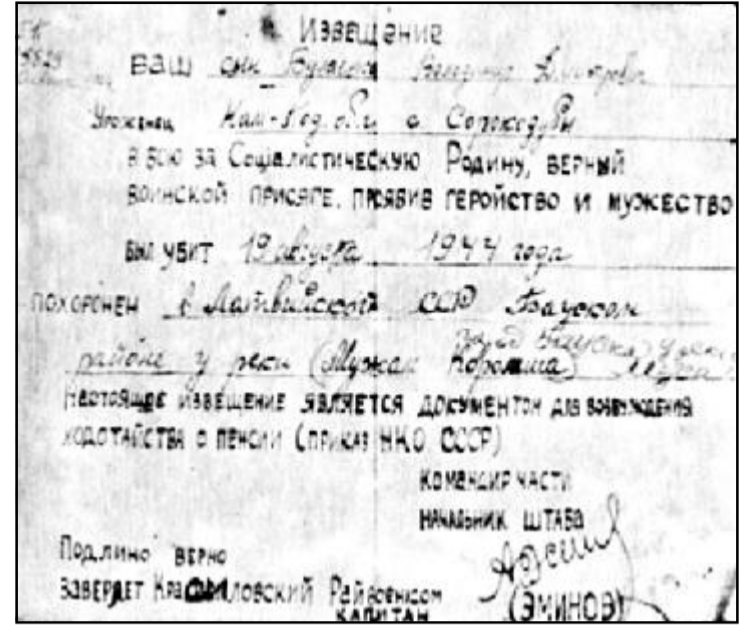 Извещение
ваш сын
Уроженец Кам-Под. обл. с. Сорокодубы
в бою за Социалистическую Родину, верный
воинской присяге, проявив геройство и мужество
был убит 19 августа 1944 года
похоронен в Латвийской ССР Бауском
районе у реки (Мужая
Настоящее извещение является документом для возбуждения
ходотайства о пенсии (приказ НКО СССР)
Командир части
начальник штаба
Подлино верно
заверяет Красиловский Райвоенком
капитан (Эминов)